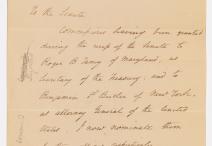 To the Senate
Commissions having been granted
during the recess of the Senate to
Roger B. Taney of Maryland, as
Secretary of the Treasury; and to
Benjamin F. Butler of New York,
as attorney General of the United
States. I now nominate them